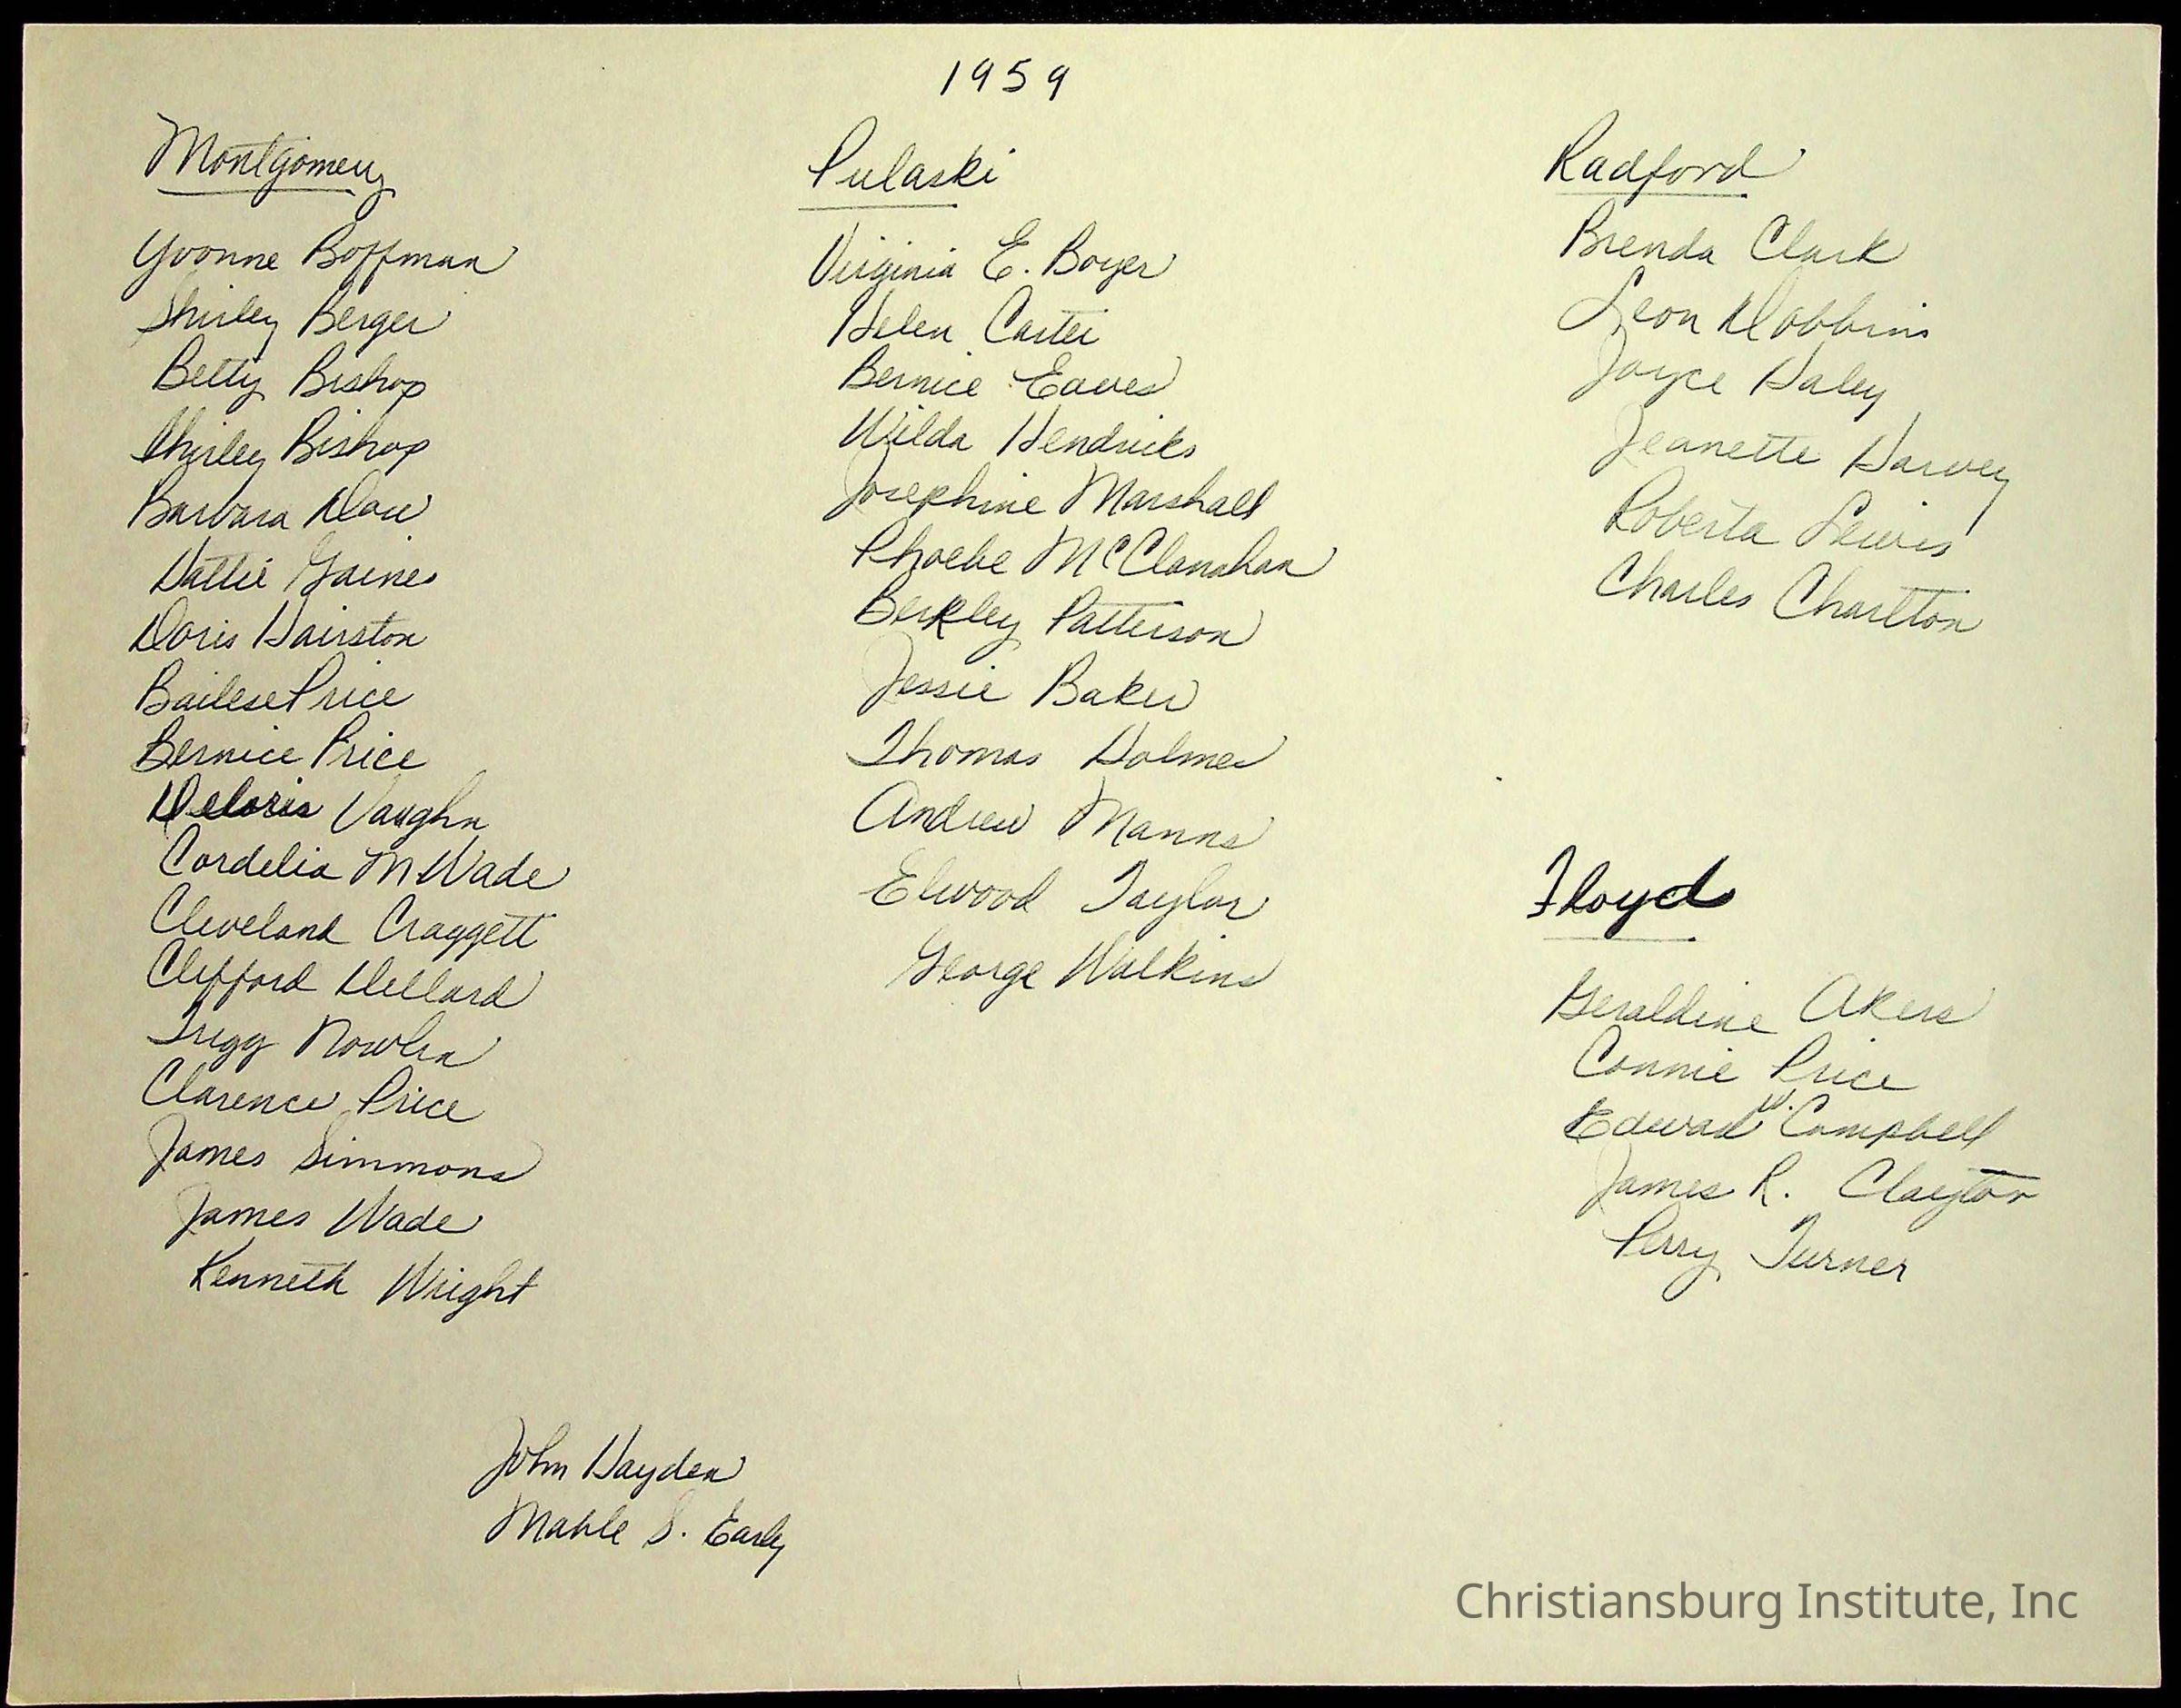 1959
Montgomery
Yvonne Boffman
Shirley Berger
Betty Bishop
Shirley Bishop
Barbara Dow
Hattie Gaines
Doris Hairston
Bailese Price
Bernice Price
Deloris Vaughn
Cordelia M Wade
Cleveland Craggett
Clifford Dellard
Trigg Nowlin
Clarence Price
James Simmons
James Wade
Kenneth Wright
John Hayden
Mable S. Early
Pulaski
Virginia E. Boyer
Helen Carter
Bernice Eaves
Wilda Hendricks
Josephine Marshall
Phoebe McClanahan
Berkley Patterson
Jessie Baker
Thomas Holmes
Andrew Manns
Elwood Taylor
George Walkins
Radford
Brenda Clark
Leon Dobbins
Joyce Haley
Jeanette Harvey
Roberta Lewis
Charles Charlton
Floyd
Geraldine Akers
Connie Price
Edward W. Campbell
James R. Clayton
Perry Turner
Christiansburg Institute, Inc